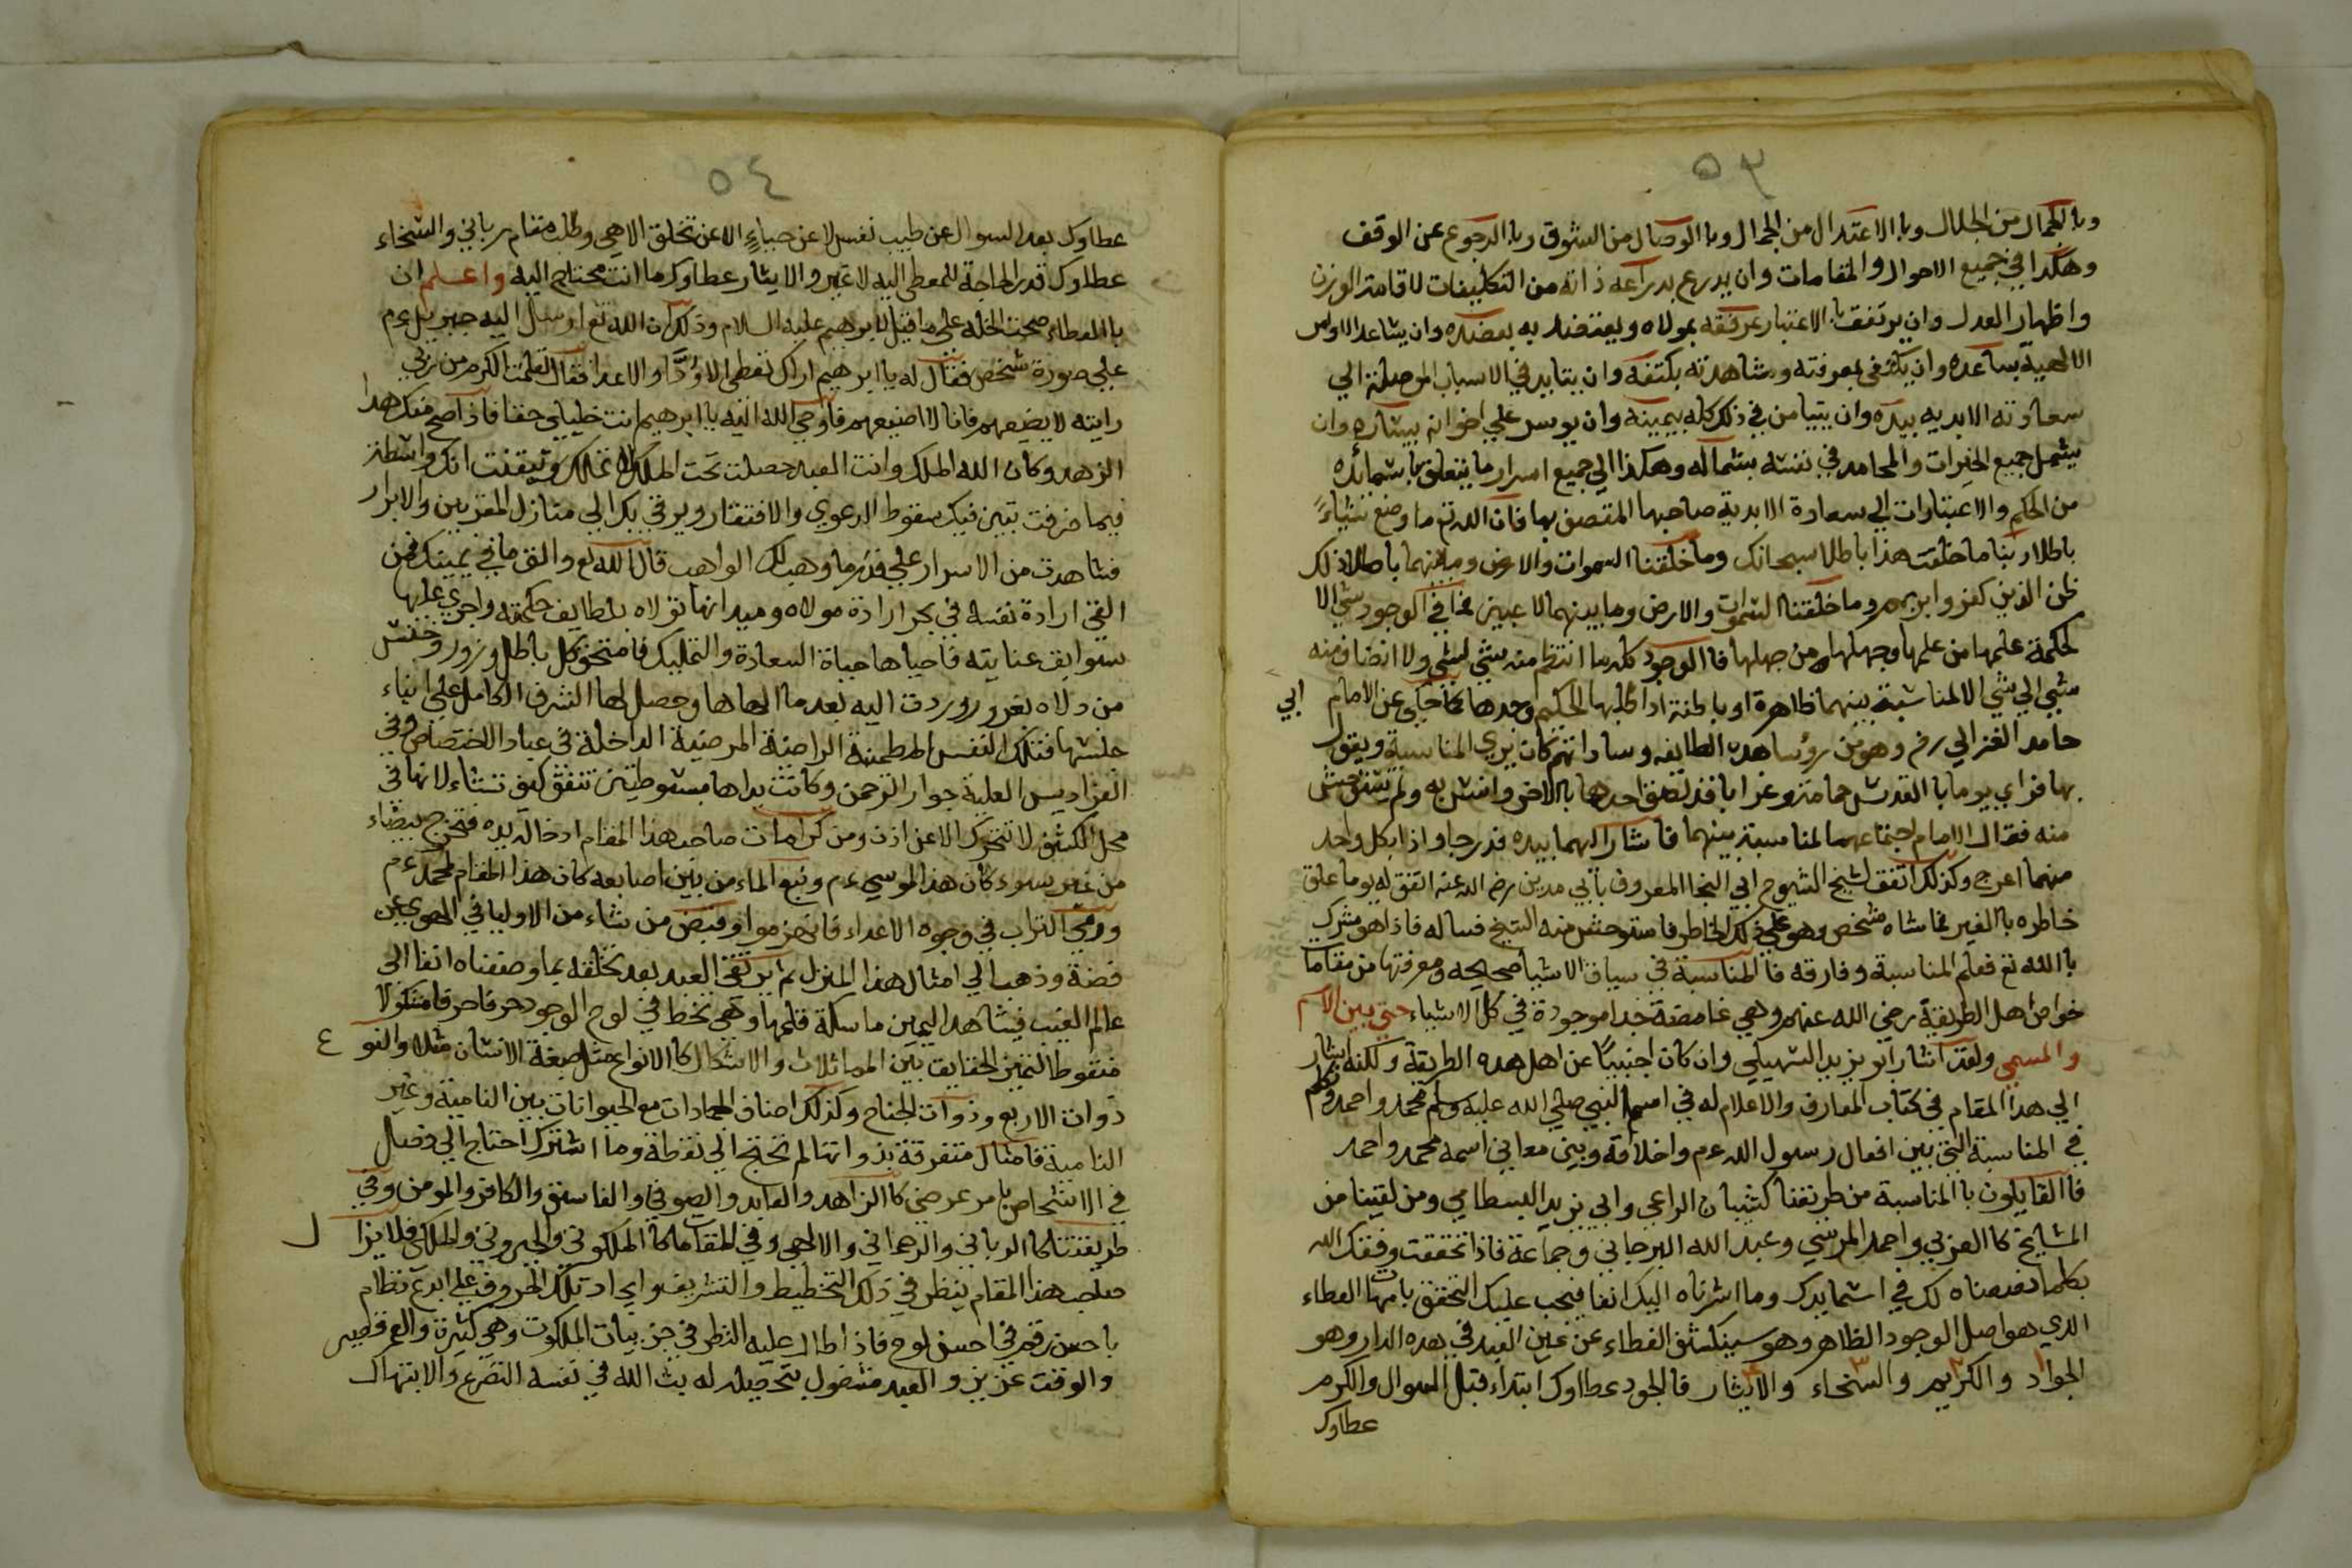 ٥٣
وبالكمال من الجلال وبالاعتدال من الجمال وبالوصال من الشوق وبالرجوع عن الوقف
وهكذا في جميع الاحوال والمقامات وان يدرع بدراعه ذاته من التكليفات لاقامة الوزن
واظهار العدل وان يرتفق بالاعتبار بمرفقه بمولاه ويعتضد به بعضده وان يساعد الاوامر
الالهية بساعده وان يكتفى بمعرفته ومشاهدته بكتفه وان يتايد في الاسباب الموصلة الي
سعادته الابديه بيده وان يتيامن في ذلك كله بيمينه وان يوسر علي اخوانه بيساره وان
يشمل جميع الخيرات والمحامد في نفسه بشماله وهكذا الي جميع اسرار ما يتعلق بشمائله
من الحكم والاعتبارات الي سعادة الابدية صاحبها المتصف بها فان الله تع ما وضع شياءً
باطلا ربنا ما خلقت هذا باطلا سبحانك وما خلقنا السموات والارض وما بينهما باطلا ذلك
ظن الذين كفروا بربهم وما خلقنا السموات والارض وما بينهما لاعبين فما في الوجود شي الا
لحكمة علمها من علمها وجهلها من جهلها فالوجود كله ما انتظم منه شي لشي ولا انضاف منه
شي الي شي الا لمناسبة بينهما ظاهرة او باطنة اذا طلبها الحكيم وجدها كما حكي عن الامام ابي
حامد الغزالي رض وهو من رؤساء هذه الطايفه وساداتهم كان يري المناسبة ويقول
بها فراي يوما بالقدس حمامة وغرابا قد لصق احدهما بالاخر وانس به ولم يستوحش
منه فقال الامام اجتماعهما لمناسبة بينهما فاشار اليهما بيده فدرجا واذا بكل واحد
منهما اعرج وكذلك اتفق لشيخ الشيوخ ابي النجا المعروف بابي مدين رضى الله عنه اتفق له يوما علق
خاطره بالغير فماشاه شخص وهو علي ذلك الخاطر فاستوحش منه الشيخ فساله فاذا هو مشرك
بالله تع فعلم المناسبة وفارقه فالمناسبة في سياق الاشيا صحيحه ومعرفتها من مقامات
خواص اهل الطريقة رضي الله عنهم وهي غامضة جدا موجودة في كل الاشياء حتي بين الاسم
والمسمى ولقد اشار ابو يزيد السهيلي وان كان اجنبيًا عن اهل هذه الطريقة ولكنه اشار
الي هذا المقام في كتاب المعارف والاعلام له في اسم النبي صلي الله عليه وسلم محمد واحمد وتكلم
في المناسبة التي بين افعال رسول الله عم واخلاقه وبين معاني اسمه محمد واحمد
فالقايلون بالمناسبة من طريقنا كشيبان الراعي وابي يزيد البسطامي ومن لقينا من
المشايخ كالعربي واحمد المرسي وعبد الله البرجاني وجماعة فاذا تحققت وفقك الله
بكلما نصصناه لك في اسما يدك وما اشرناه اليك انفا فيجب عليك التحقق بامهات العطاء
الذي هو اصل الوجود الظاهر وهو سينكشف الغطاء عن عين القيد في هذه الدار وهو
الجواد والكريم والسخاء والايثار فالجود عطاوك ابتداء قبل السوال والكرم
عطاوك
٥٤
عطاوك بعد السوال عن طيب نفس لا عن حياءٍ الا عن تخلق الاهي وطلب مقام رباني والسخاء
عطاوك قدر الحاجة للمعطي اليه لا غير والايثار عطاوك ما انت محتاج اليه واعلم ان
بالعطاء صحت الخلة علي ما قيل لابرهيم عليه السلام وذلك ان الله تع ارسل اليه جبريل عم
علي صورة شخص فقال له يا ابرهيم اراك تعطي الاودَّا والاعدا فقال تعلمت الكرم من ربي
رايته لا يضيعهم فانا لا اضيعهم فاوحي الله اليه يا ابرهيم انت خليلي حقا فاذا صح منك هذا
الزهد وكان الله الملك وانت العبد حصلت تحت الملك لا تملك وتيقنت انك واسطة
فيما صرفت تبين فيك سقوط الدعوي والافتقار ويرقي بك الي منازل المقربين والابرار
فشاهدت من الاسرار علي قدر ما وهب لك الواهب قال الله تع والق ما في يمينك فمن
القى ارادة نفسه في بحر ارادة مولاه وميدانها تولاه بلطايف حكمته واجري عليها
سوابق عنايته فاحياها حياة السعادة والتمليك فامتحق كل باطل وزور وخنس
من دلاه بغرور وردت اليه بعد ما الهاها وحصل لها الشرف الكامل علي ابناء
جنسها فتلك النفس المطمئنة الراضية المرضية الداخلة في عباد الاختصاص وفي
الفراديس العلية جوار الرحمن وكانت يداها مبسوطتين تنفق كيف تشاء لانها في
محل الكشف لا تتحرك الا عن اذن ومن كرامات صاحب هذا المقام ادخاله يده فتخرج بيضاء
من غير سوء كان هذا لموسي عم ونبع الماء من بين اصابعه كان هذا المقام لمحمد عم
ورمي التراب في وجوه الاعداء فانهزموا وقبض من شاء من الاوليا في الهوي عن
فضة وذهب الي امثال هذا المنزل ثم يرتقي العبد بعد تخلقه بما وصفناه انفا الي
عالم الغيب فيشاهد اليمين ماسكة قلمها وهي تخط في لوح الوجود حرفا حرفا مشكولا
منقوطا لتميز الحقايق بين المماثلات والاشكال كالانواع مثل صيغة الانسان مثلا والنوع
ذوات الاربع وذوات الجناح وكذلك اصناف الجمادات مع الحيوانات بين النامية وغير
النامية فامثال متفرقة بذواتها لم تحتج الي نقطة وما اشترك احتاج الي فصل
في الاشخاص بامر عرضي كالزاهد والعابد والصوفي والفاسق والكافر والمومن وفي
طريقتنا كالرباني والرحماني والالهي وفي المقامات كالملكوتي والجبروتي والملكي فلا يزال
صاحب هذا المقام ينظر في ذلك التخطيط والتشريف وايجاد تلك الحروف علي ابدع نظام
باحسن رقم في احسن لوح فاذا طال عليه النظر في جزييات الملكوت وهي كثيرة والعمر قصير
والوقت عزيز والعبد مشغول بتحصيله له بث الله في نفسه التضرع والابتهال